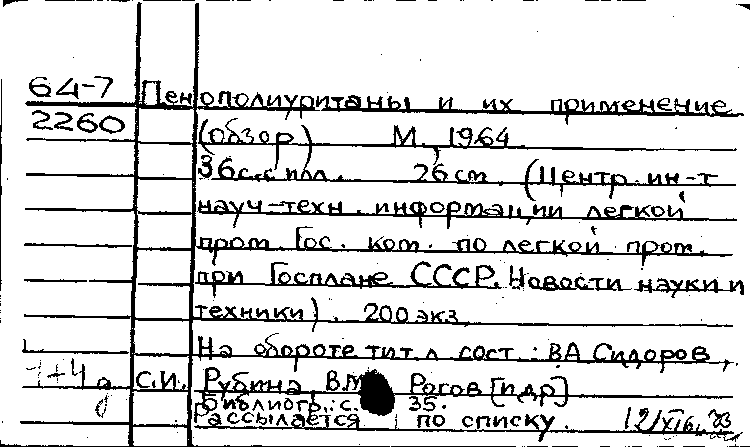 64-7 Пенополиуританы и их применение
2260 (обзор) М., 1964
36с.с илл. 26 cm. (Центр. ин-т
науч-техн. информации легкой
пром. Гос. ком. по легкой пром.
при Госплане СССР. Новости науки и
техники). 200 экз.
На обороте тит. л сост.: ВА Сидоров,
1+4 С.И. Рубина, В.М. Рогов [идр]
Библиогр.: с. 35.
Рассылается по списку.